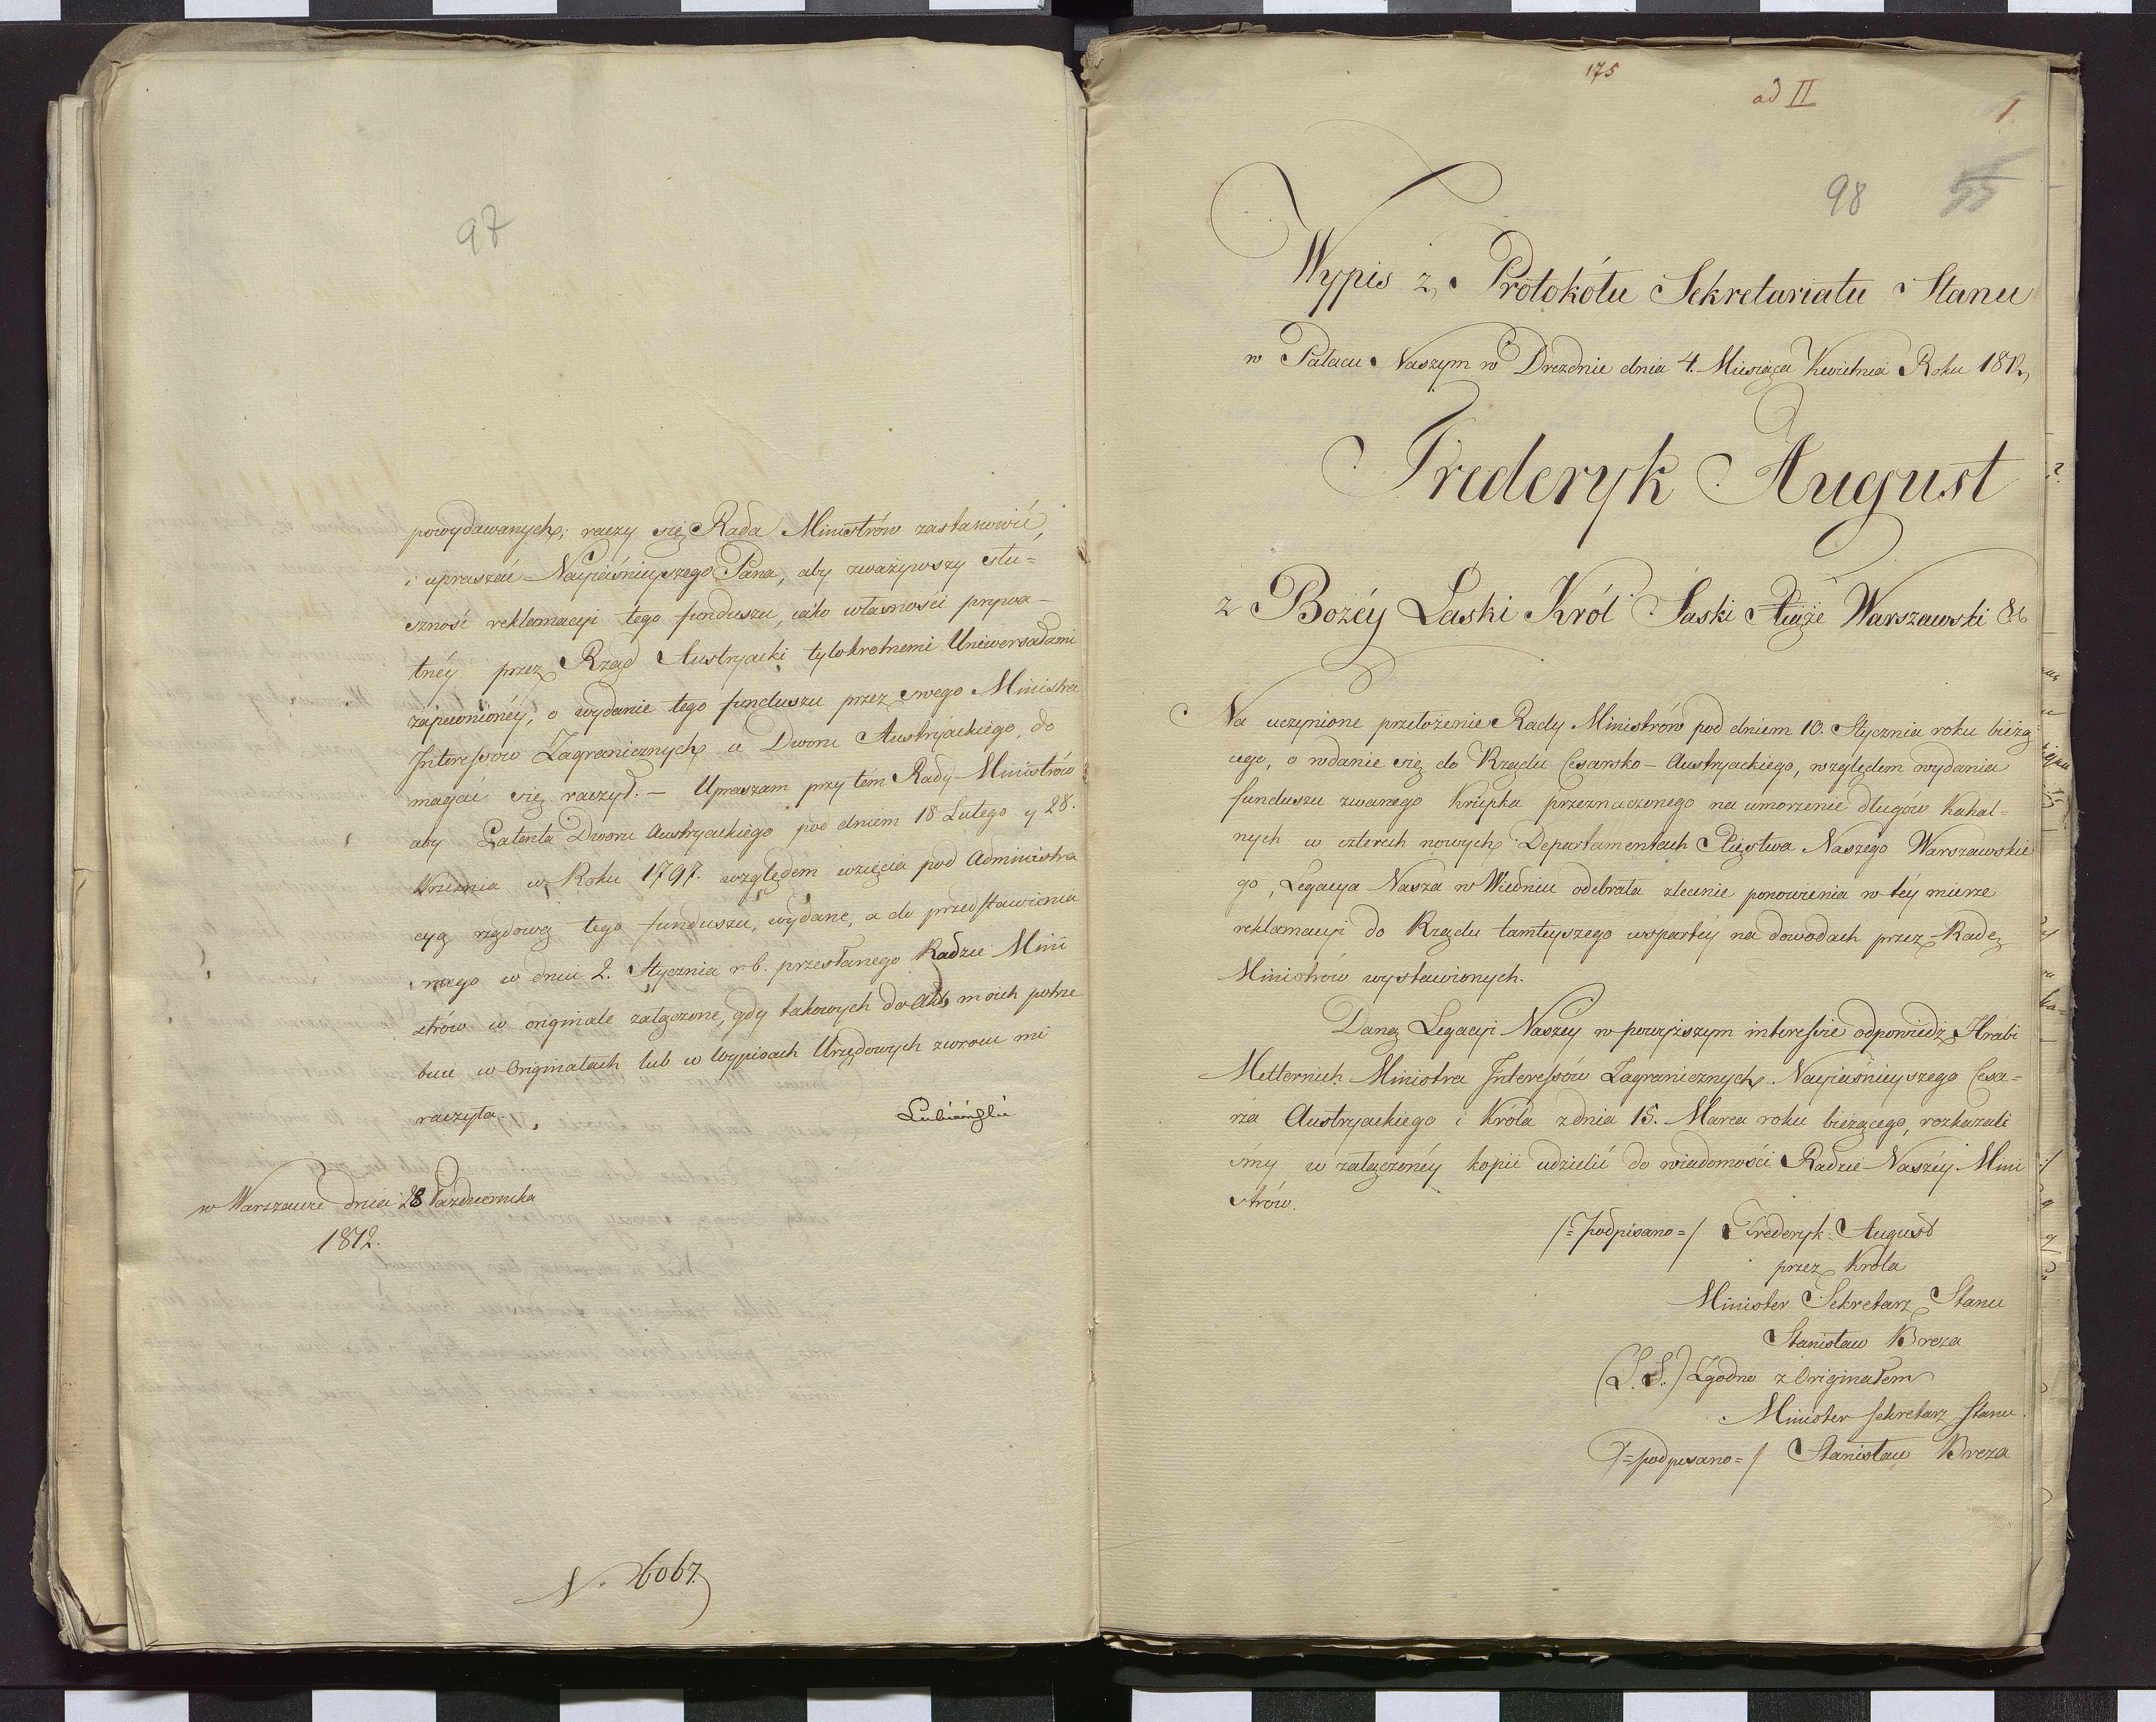 97
powydawanych; raczy się Rada Ministrów zastanowić,
i upraszać Nayiaśnieyszego Pana, aby zważywszy słu=
szność reklamacyi tego funduszu, iako własności prywa-
tnéy przez Rząd Austryacki tylokrotnemi Uniwersałami
zapewnionéy, o wydanie tego funduszu przez swego Ministra
Interessów Zagranicznych u Dworu Austryackiego, do
magać się raczył. – Upraszam przy tem Rady Ministrów
aby Patenta Dworu Austryackiego pod dniem 18 Lutego y 28.
Września w Roku 1797. względem wzięcia pod Administra
cyą rządową tego funduszu, wydane, a do przedstawienia
mego w dniu 2. Stycznia r.b. przesłanego Radzie Mini
strów w originale załączone, gdy takowych do Akt moich potrze
buie w Originałach lub w Wypisach Urzędowych zwrócić mi
raczyła.
Lubieński
w Warszawie dnia 28 Października
1812.
N. 6067.
175
ad II
1
98
55
Wypis z Protokółu Sekretariatu Stanu
w Pałacu Naszym w Dreźdnie dnia 4. Miesiąca Kwietnia Roku 1812,
Frederyk August
z Bożéy Łaski Król Saski Xiąże Warszawski &c
Na uczynione przełożenie Rady Ministrów pod dniem 10. Stycznia roku bieżą
cego, o wdanie się do Rządu Cesarsko-Austryackiego, względem wydania
funduszu zwanego Krupka przeznaczonego na umorzenie długów Kahal=
nych w czterech nowych Departamentach Xięstwa Naszego Warszawskie
go, Legacya Nasza w Wiedniu odebrała zlecenie ponowienia w téy mierze
reklamacyi do Rządu tamteyszego wspartéy na dowodach przez Radę
Ministrów wystawionych.
Daną Legacyi Naszey w powyższym interessie odpowiedź Hrabi
Metternich Ministra Interessów Zagranicznych Nayiaśnieyszego Cesa=
rza Austryackiego i Króla z dnia 15. Marca roku bieżącego, rozkazali
śmy w załączonéy kopii udzielić do wiadomości Radzie Naszéy Mini
strów.
/=podpisano=/ Frederyk August
przez Króla
Minister Sekretarz Stanu
Stanisław Breza
(L.S.) Zgodno z Originałem
Minister Sekretarz Stanu.
/=podpisano=/ Stanisław Breza